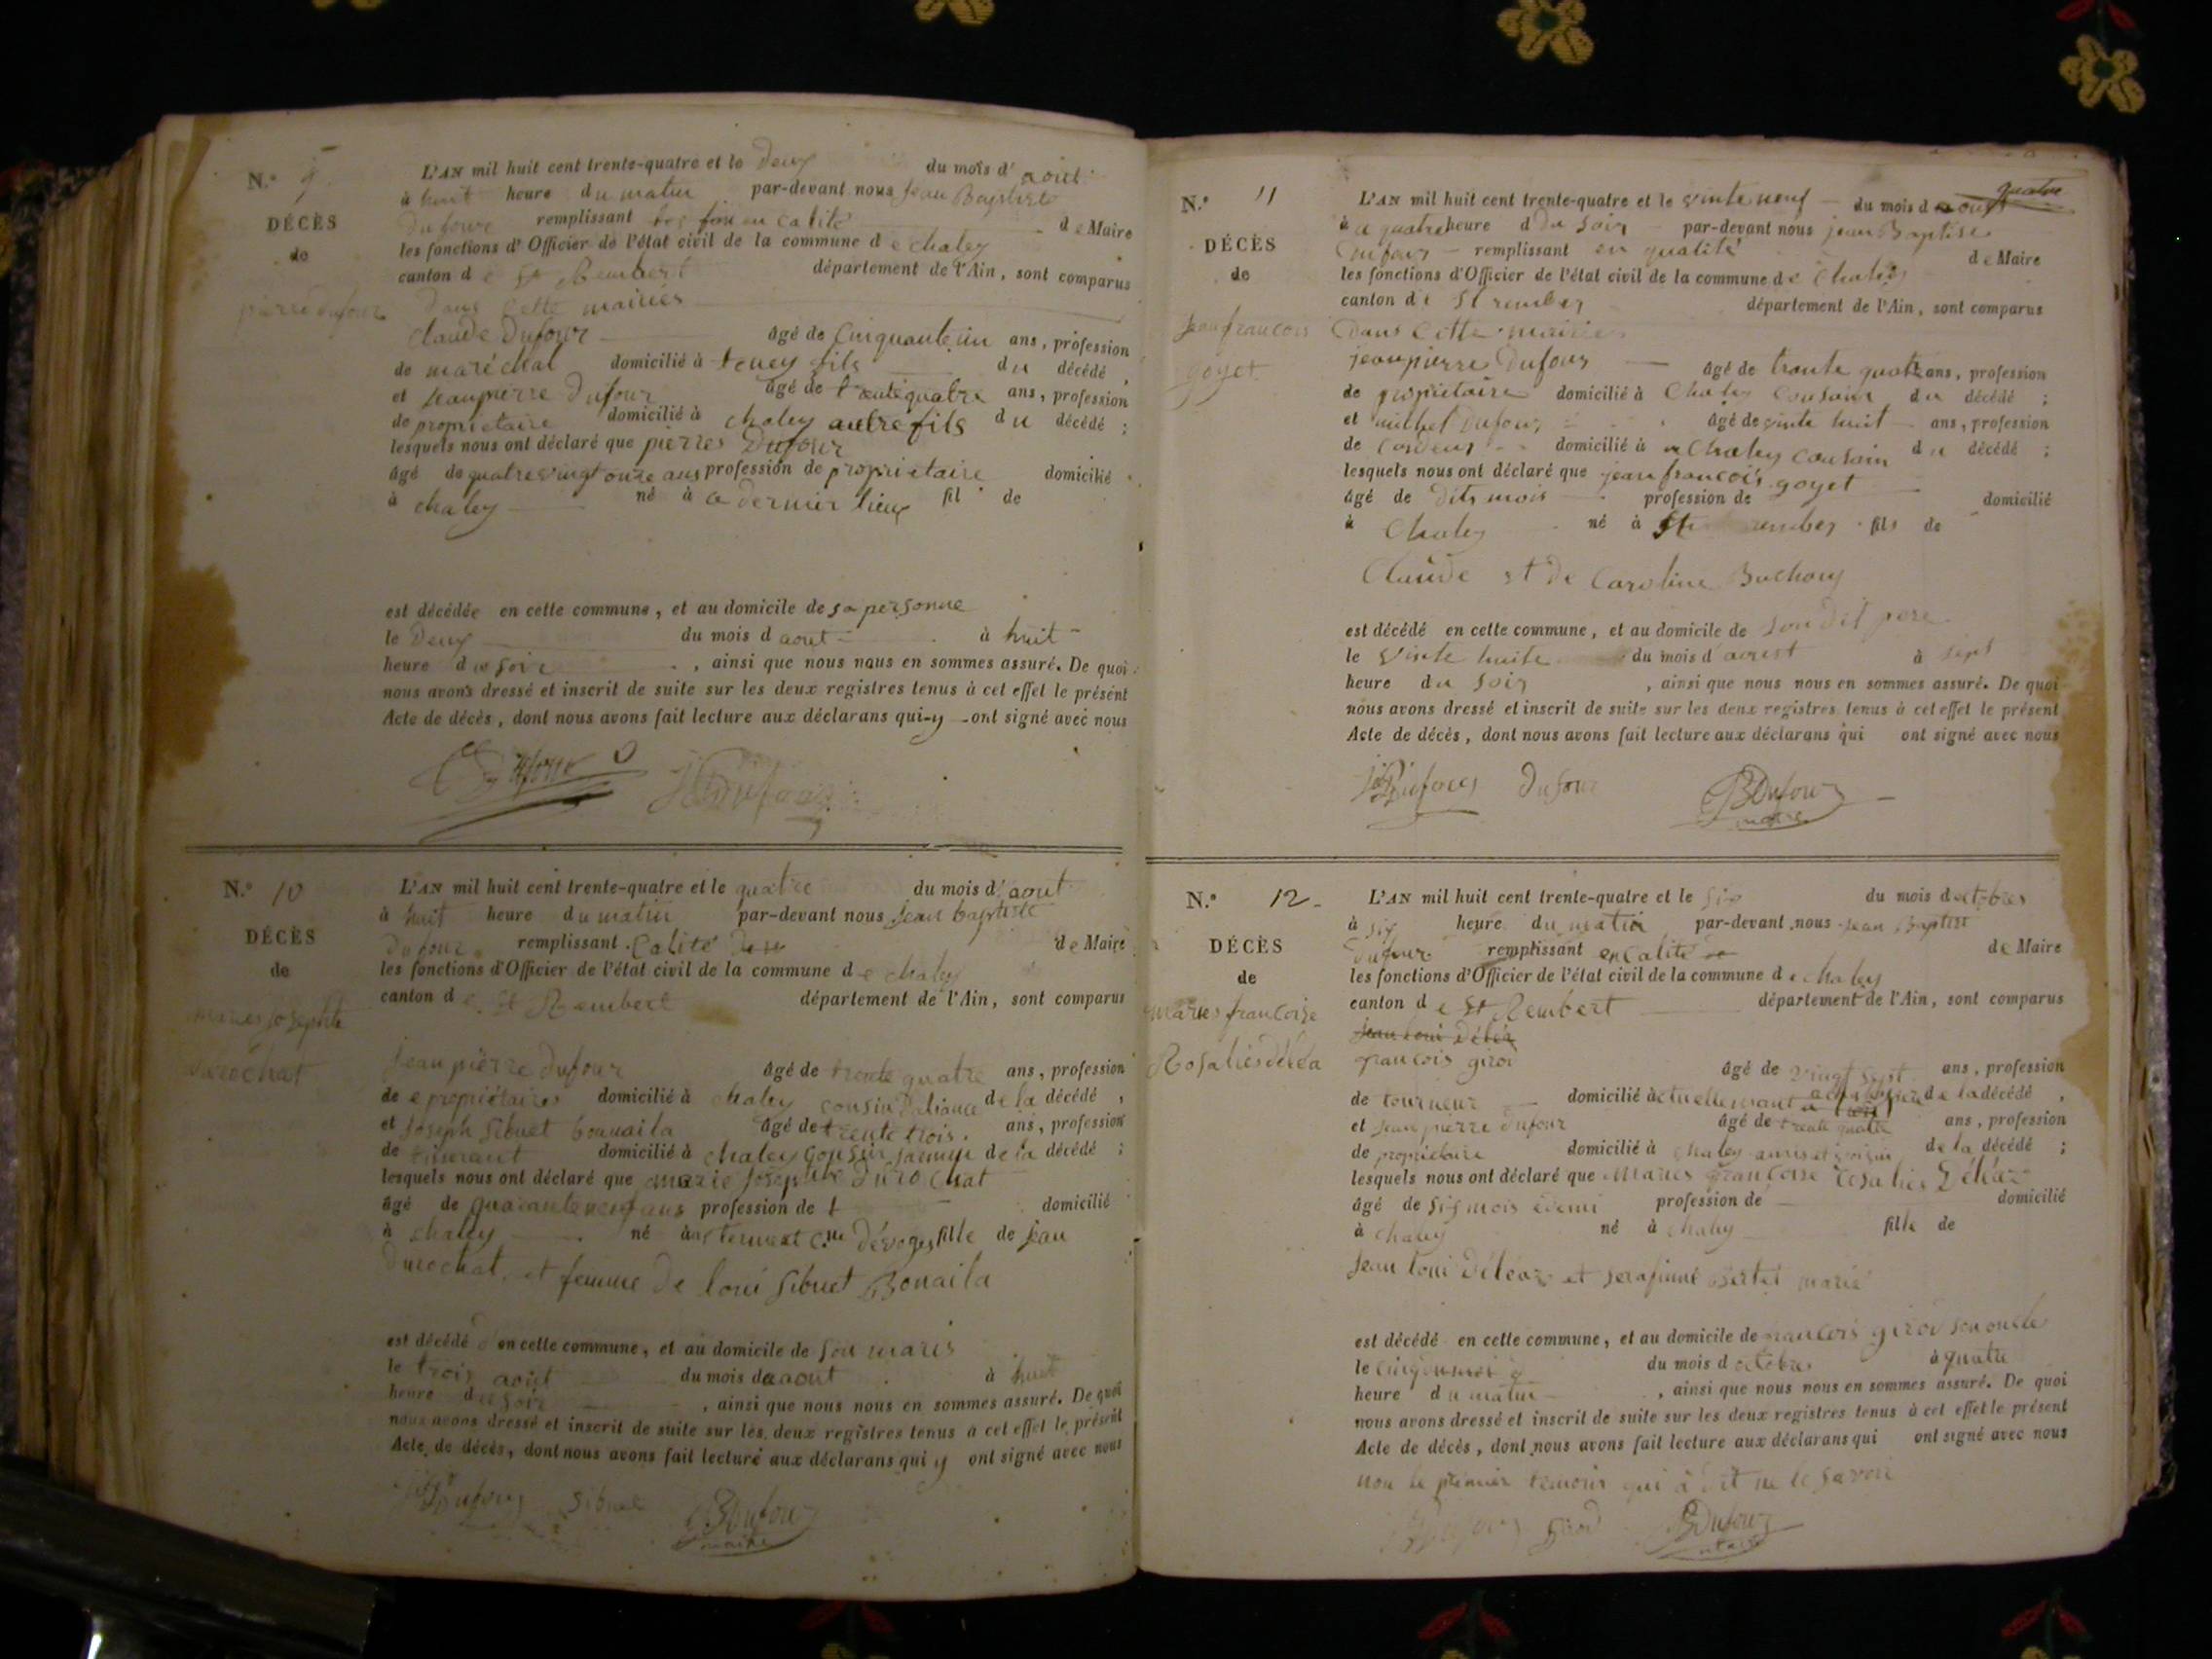 N.º 9
DÉCÈS
de
pierre dufour
L'AN mil huit cent trente-quatre et le deux du mois d'aout
à huit heure du matin par-devant nous Jean Baptiste
Dufour remplissant en calité de Maire
les fonctions d'Officier de l'état civil de la commune de chaley
canton de St Rembert département de l'Ain, sont comparus
dans cette mairies
claude Dufour âgé de Cinquante un ans, profession
de maréchal domicilié à teney fils du décédé,
et Jeanpierre Dufour âgé de trentequatre ans, profession
de propriétaire domicilié à chaley autre fils du décédé;
lesquels nous ont déclaré que pierres Dufour
âgé de quatrevingt onze ans profession de propriétaire domicilié
à chaley né à ce dernier lieux fil de
est décédée en cette commune, et au domicile de sa personne
le Deux du mois d aout à huit
heure du soir, ainsi que nous nous en sommes assuré. De quoi
nous avons dressé et inscrit de suite sur les deux registres tenus à cet effet le présent
Acte de décès, dont nous avons fait lecture aux déclarans qui y ont signé avec nous
Dufour
N.º 10
DÉCÈS
de
maries josephte
durochat
L'AN mil huit cent trente-quatre et le quatre du mois d'aout
à huit heure du matin par-devant nous Jean baptiste
dufour remplissant Calité de Maire
les fonctions d'Officier de l'état civil de la commune de chaley
canton de St Rambert département de l'Ain, sont comparus
Jean pierre Dufour âgé de trente quatre ans, profession
de propriétaires domicilié à chaley cousin daliance de la décédé,
et Joseph Sibuet bonaila âgé de trente trois ans, profession
de tisserant domicilié à chaley Cousin Jermin de la décédé;
lesquels nous ont déclaré que marie Josephte Durochat
âgé de quarante neuf ans profession de domicilié
à chaley né fille de jean
Durochat, et femme de loui Sibuet Bonaila
est décédé en cette commune, et au domicile de son maris
le trois aout du mois da aout à huit
heure du soir, ainsi que nous nous en sommes assuré. De quoi
nous avons dressé et inscrit de suite sur les deux registres tenus à cet effet le présent
Acte de décès, dont nous avons fait lecture aux déclarans qui y ont signé avec nous
Dufour Sibuet BDufour
maire
N.º 11
DÉCÈS
de
Jean francois
goyet
L'AN mil huit cent trente-quatre et le vinte neuf du mois d aout quatre
à quatre heure du soir par-devant nous jean Baptise
Dufour remplissant en qualité de Maire
les fonctions d'Officier de l'état civil de la commune de Chaley
canton de St rember département de l'Ain, sont comparus
Dans Cette mairie
jeanpierre Dufour âgé de trante quatre ans, profession
de propietaire domicilié à Chaley Cousain du décédé;
et michel Dufour âgé de vinte huit ans, profession
de domicilié à Chaley cousain du décédé;
lesquels nous ont déclaré que jean francois goyet
âgé de mois profession de domicilié
à Chaley né à St rember fils de
Claude et de Caroline Buchou
est décédé en cette commune, et au domicile de son dit pere
le vinte huite du mois d aoust à sept
heure du soir, ainsi que nous nous en sommes assuré. De quoi
nous avons dressé et inscrit de suite sur les deux registres tenus à cet effet le présent
Acte de décès, dont nous avons fait lecture aux déclarans qui ont signé avec nous
Dufour Dufour BDufour
maire
N.º 12
DÉCÈS
de
maries francoise
Rosalies déléa
L'AN mil huit cent trente-quatre et le six du mois doctobres
à six heure du matin par-devant nous Jean Baptist
Dufour remplissant en calité de Maire
les fonctions d'Officier de l'état civil de la commune de chaley
canton de St Rembert département de l'Ain, sont comparus
Jean loui
francois girod âgé de vingt sept ans, profession
de tourneur domicilié actuellemant de la décédé,
et Jean pierre dufour âgé de trente quatre ans, profession
de propriétaire domicilié à chaley amis et voisin de la décédé;
lesquels nous ont déclaré que Maries francoise rosalies Déléaz
âgé de six mois édemi profession de domicilié
à chaley né à chaley fille de
Jean loui Déléaz et serafinne Bertet marié
est décédé en cette commune, et au domicile de francois girod son oncle
le du mois d octobres à quatre
heure du matin, ainsi que nous nous en sommes assuré. De quoi
nous avons dressé et inscrit de suite sur les deux registres tenus à cet effet le présent
Acte de décès, dont nous avons fait lecture aux déclarans qui ont signé avec nous
non le premier temoin qui à dit ne le savoir
Dufour BDufour
maire